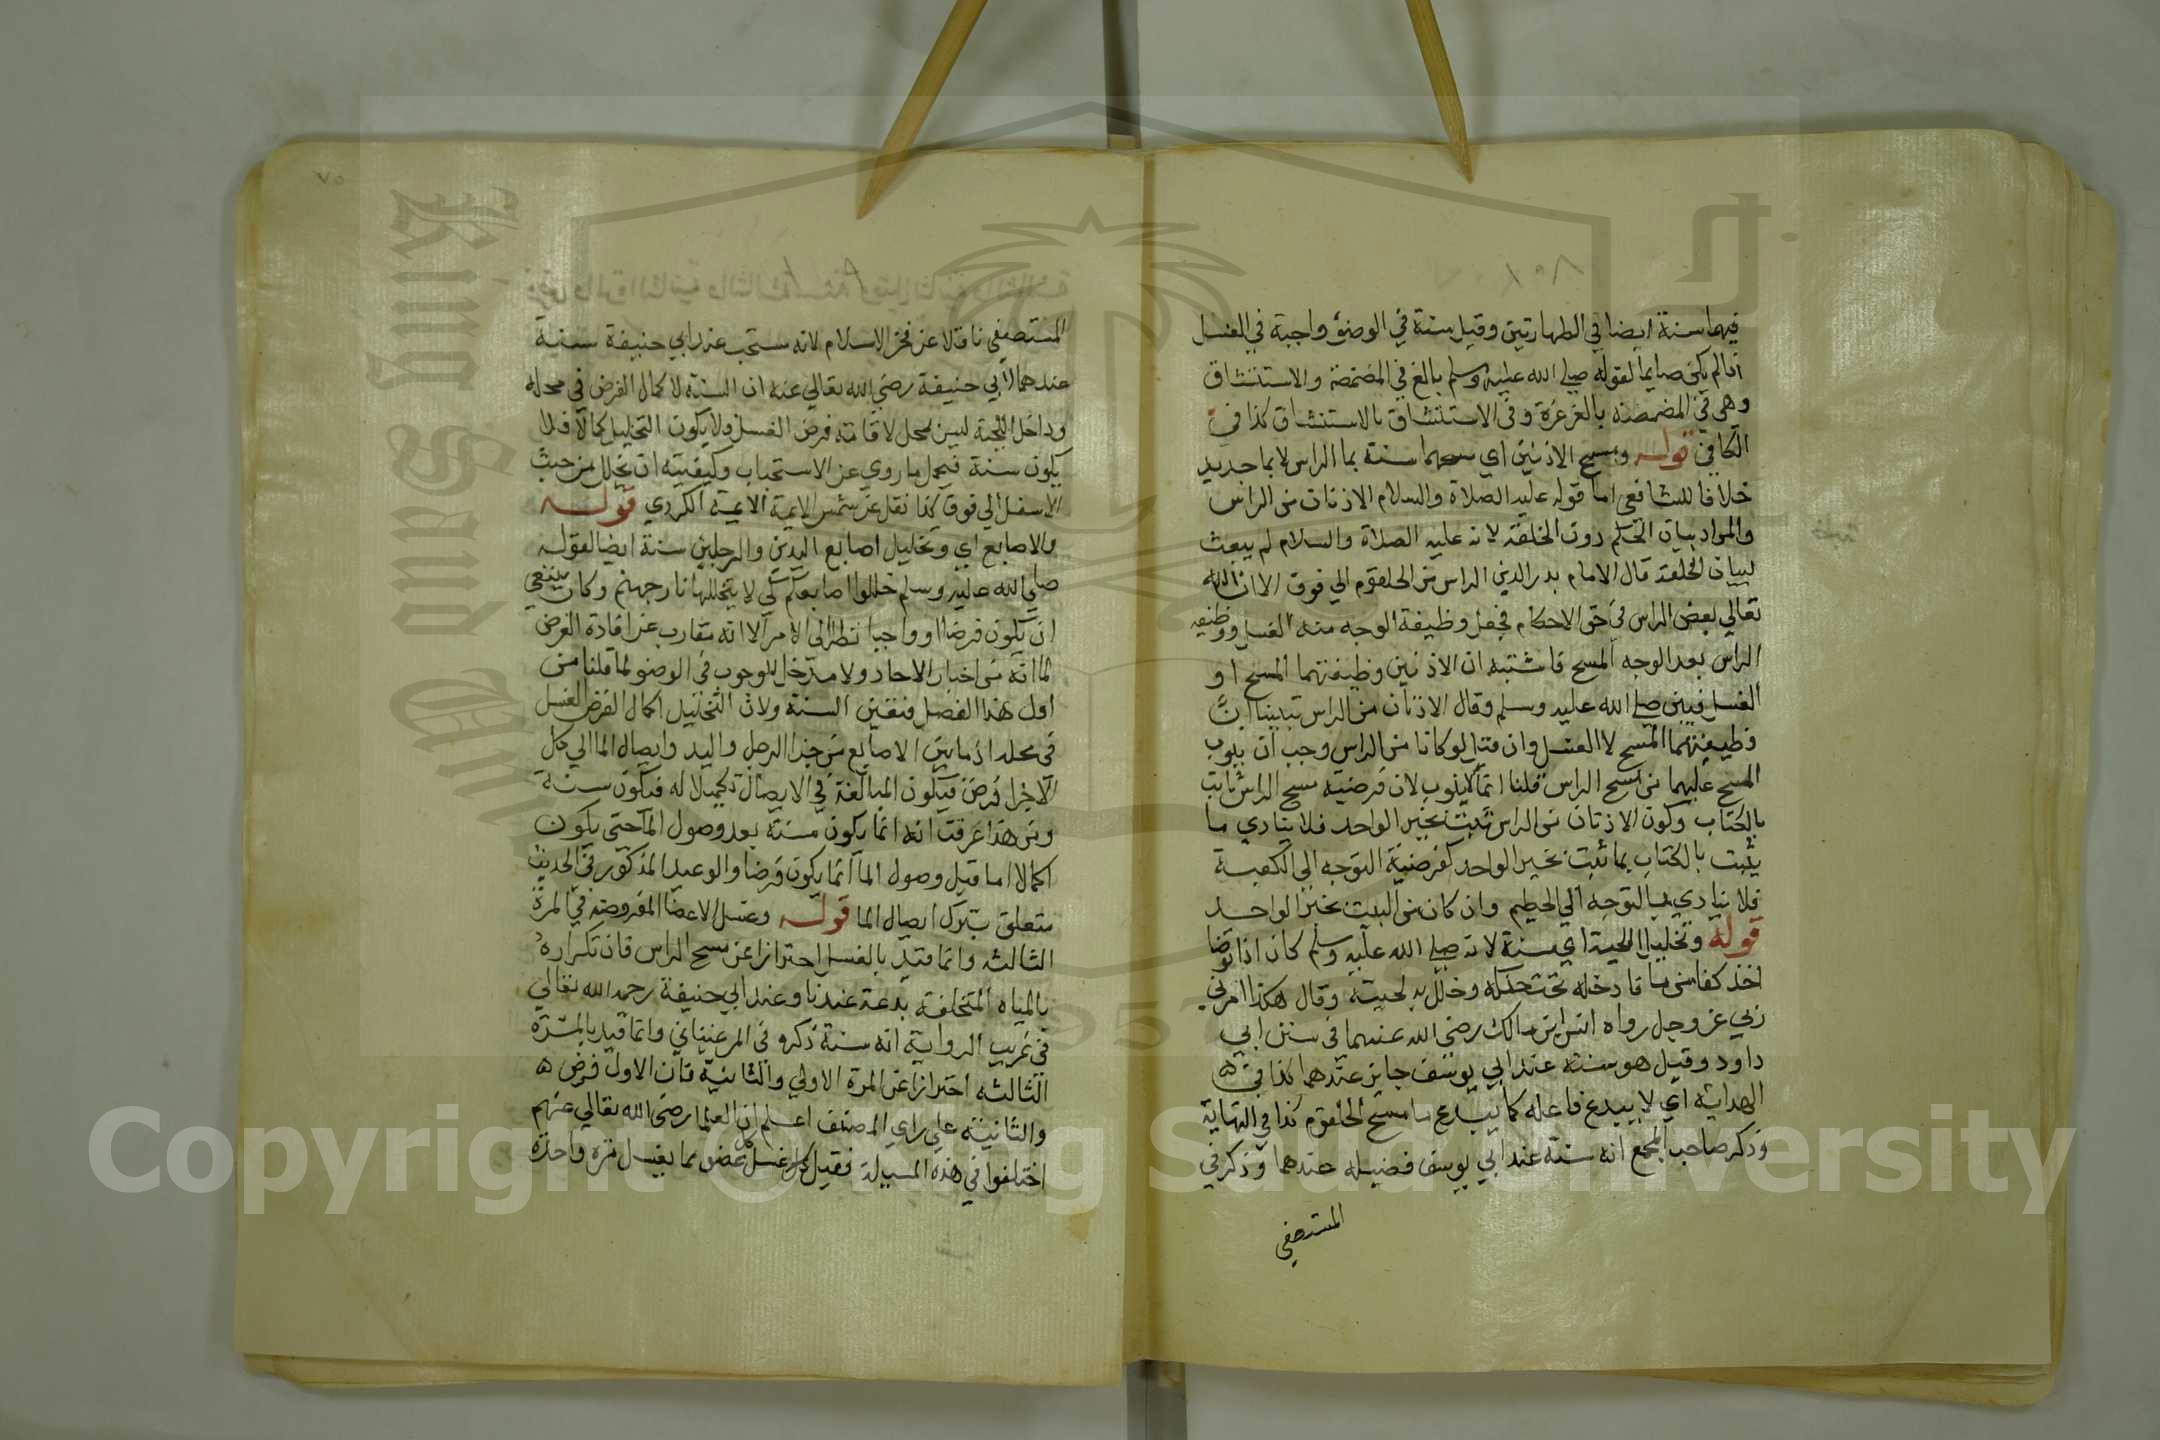 فيهما سنة ايضا في الطهارتين وقيل سنة في الوضوء واجبة في الغسل
لم يكن صايما لقوله صلى الله عليه وسلم بالغ في المضمضة والاستنشاق
وهي في المضمضة بالغرغرة وفي الاستنشاق بالاستنشاق كذا في
الكافي قوله ومسح الاذنين اي مسحهما سنة بما الراس لا بما جديد
خلافا للشافعي اما قوله عليه الصلاة والسلام الاذنان من الراس
والمراد بيان الحكم دون الخلقة لانه عليه الصلاة والسلام لم يبعث
لبيان الخلقة قال الامام بدر الدين الراس من الحلقوم الي فوق الا ان الله
تعالي بعض الراس في حق الاحكام فجعل وظيفة الوجه منه الغسل ووظيفة
الراس بعد الوجه المسح فاشتبه ان الاذنين وظيفتهما المسح او
الغسل فبين صلى الله عليه وسلم وقال الاذنان من الراس تبيينا ان
وظيفتهما المسح لا الغسل وان قيل لو كانا من الراس وجب ان ينوب
المسح عليهما عن مسح الراس قلنا انما لا ينوب لان فرضية مسح الراس ثابت
بالكتاب وكون الاذنان من الراس ثبت بخبر الواحد فلا يتادي ما
يثبت بالكتاب بما ثبت بخبر الواحد كفرضية التوجه الى الكعبة
فلا يتادي بالتوجه الي الحطيم وان كان من البيت بخبر الواحد
قوله وتخليل اللحية اي سنة لانه صلى الله عليه وسلم كان اذا توضا
اخذ كفا من ما فادخله تحت حنكه وخلل به لحيته وقال هكذا امرني
ربي عز وجل رواه انس ابن مالك رضى الله عنهما في سنن ابي
داود وقيل هو سنة عند ابي يوسف جايز عندهما كذا في
الهداية اي لا يبدع فاعله كما يبدع ماسح الحلقوم كذا في النهاية
وذكر صاحب المجمع انه سنة عند ابي يوسف فضيلة عندهما وذكر في
المستصفي
٧٥
المستصفي ناقلا عن فخر الاسلام لانه ستحب عند ابي حنيفة سنة
عندهما لابي حنيفة رضي الله تعالي عنه ان السنة لاكمال الفرض في محله
وداخل اللحية ليس بمحل لاقامة فرض الغسل ولا يكون التخليل كمالا فلا
يكون سنة فيحمل ما روي عن الاستحباب وكيفيته ان يخلل من حيث
الاسفل الي فوق كذا نقل عن شمس الايمة الايمة الكردري قوله
والاصابع اي وتخليل اصابع اليدين والرجلين سنة ايضا لقوله
صلى الله عليه وسلم خللوا اصابعكم كي لا يتخللها نار جهنم وكان ينبغي
ان يكون فرضا او واجبا نظرا الى الامر الا انه متقارب عن افادة الفرض
لما انه من اخبار الاحاد ولا مدخل للوجوب في الوضو لما قلنا من
اول هذا الفصل فتعين السنة ولان التخليل اكمال الفرض الغسل
في محله اذ ما بين الاصابع من جزا الرجل واليد وايصال الما الي كل
الاجزا فرض فيكون المبالغة في الايصال تكميلا له فيكون سنة
ومن هذا عرفت انه انما يكون سنة بعد وصول الما حتى يكون
اكمالا اما قبل وصول الما انما يكون فرضا والوعيد المذكور في الحديث
متعلق بترك ايصال الما قوله وغسل الاعضا المفروضه في المرة
الثالثه وانما قيد بالغسل احترازا عن مسح الراس فان تكراره
بالمياه المتخلفة بدعة عندنا وعند ابي حنيفة رحمه الله تعالي
في غريب الرواية انه سنة ذكره في المرغيناني وانما قيد بالمرة
الثالثه احترازا عن المرة الاولي والثانية فان الاول فرض
والثانية علي راي المصنف اعلم ان العلما رضى الله تعالي عنهم
اختلفوا في هذه المسيالة فقيل كل غسل عضو مما يغسل مرة واحدة
Copyright © King Saud University
King Saud University
1957